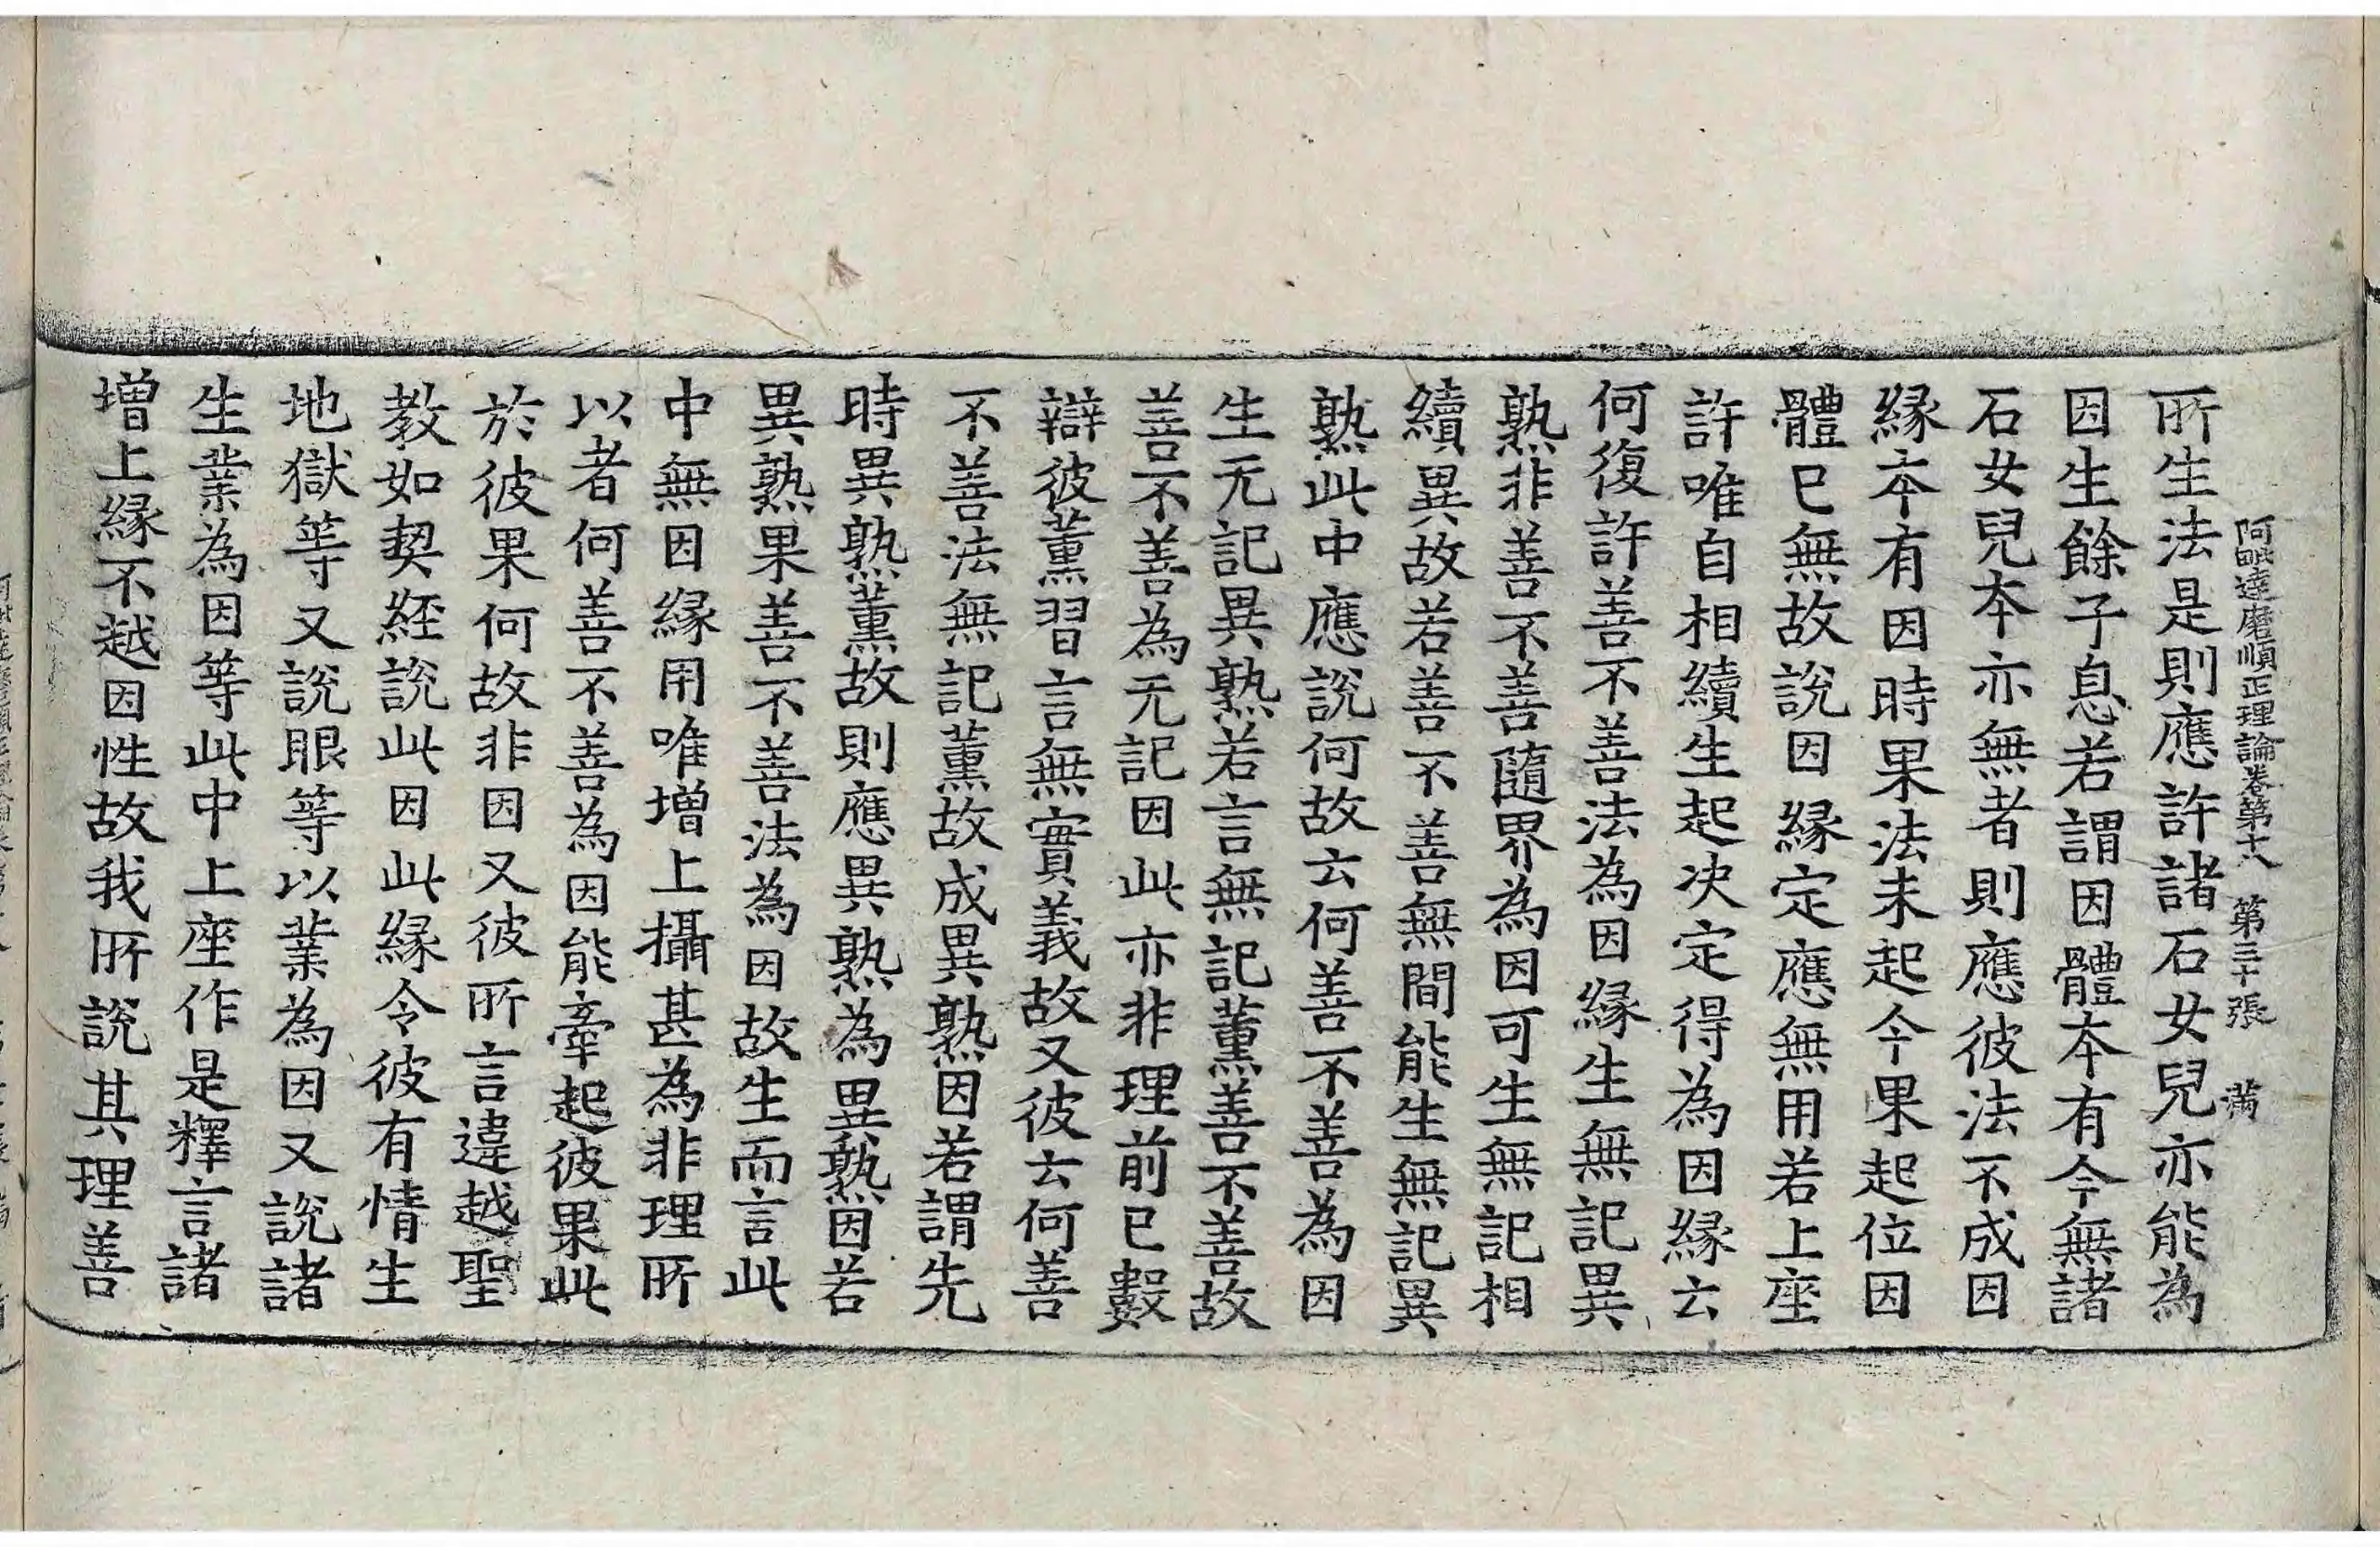 阿毗達磨順正理論卷第十八 第三十張 满
所生法是則應許諸石女兒亦能為
因生餘子息若謂因體本有今無諸
石女兒本亦無者則應彼法不成因
緣本有因時果法未起今果起位因
體已無故說因緣定應無用若上座
許唯自相續生起决定得為因緣云
何復許善不善法為因緣生無記異
熟非善不善隨界為因可生無記相
續異故若善不善無間能生無記異
熟此中應說何故云何善不善為因
生无記異熟若言無記薰善不善故
善不善為无記因此亦非理前已數
辯彼薰習言無實義故又彼云何善
不善法無記薰故成異熟因若謂先
時異熟薰故則應異熟為異熟因若
異熟果善不善法為因故生而言此
中無因緣用唯增上攝甚為非理所
以者何善不善為因能牽起彼果此
於彼果何故非因又彼所言違越聖
教如契經說此因此緣令彼有情生
地獄等又說眼等以業為因又說諸
生業為因等此中上座作是釋言諸
增上緣不越因性故我所說其理善